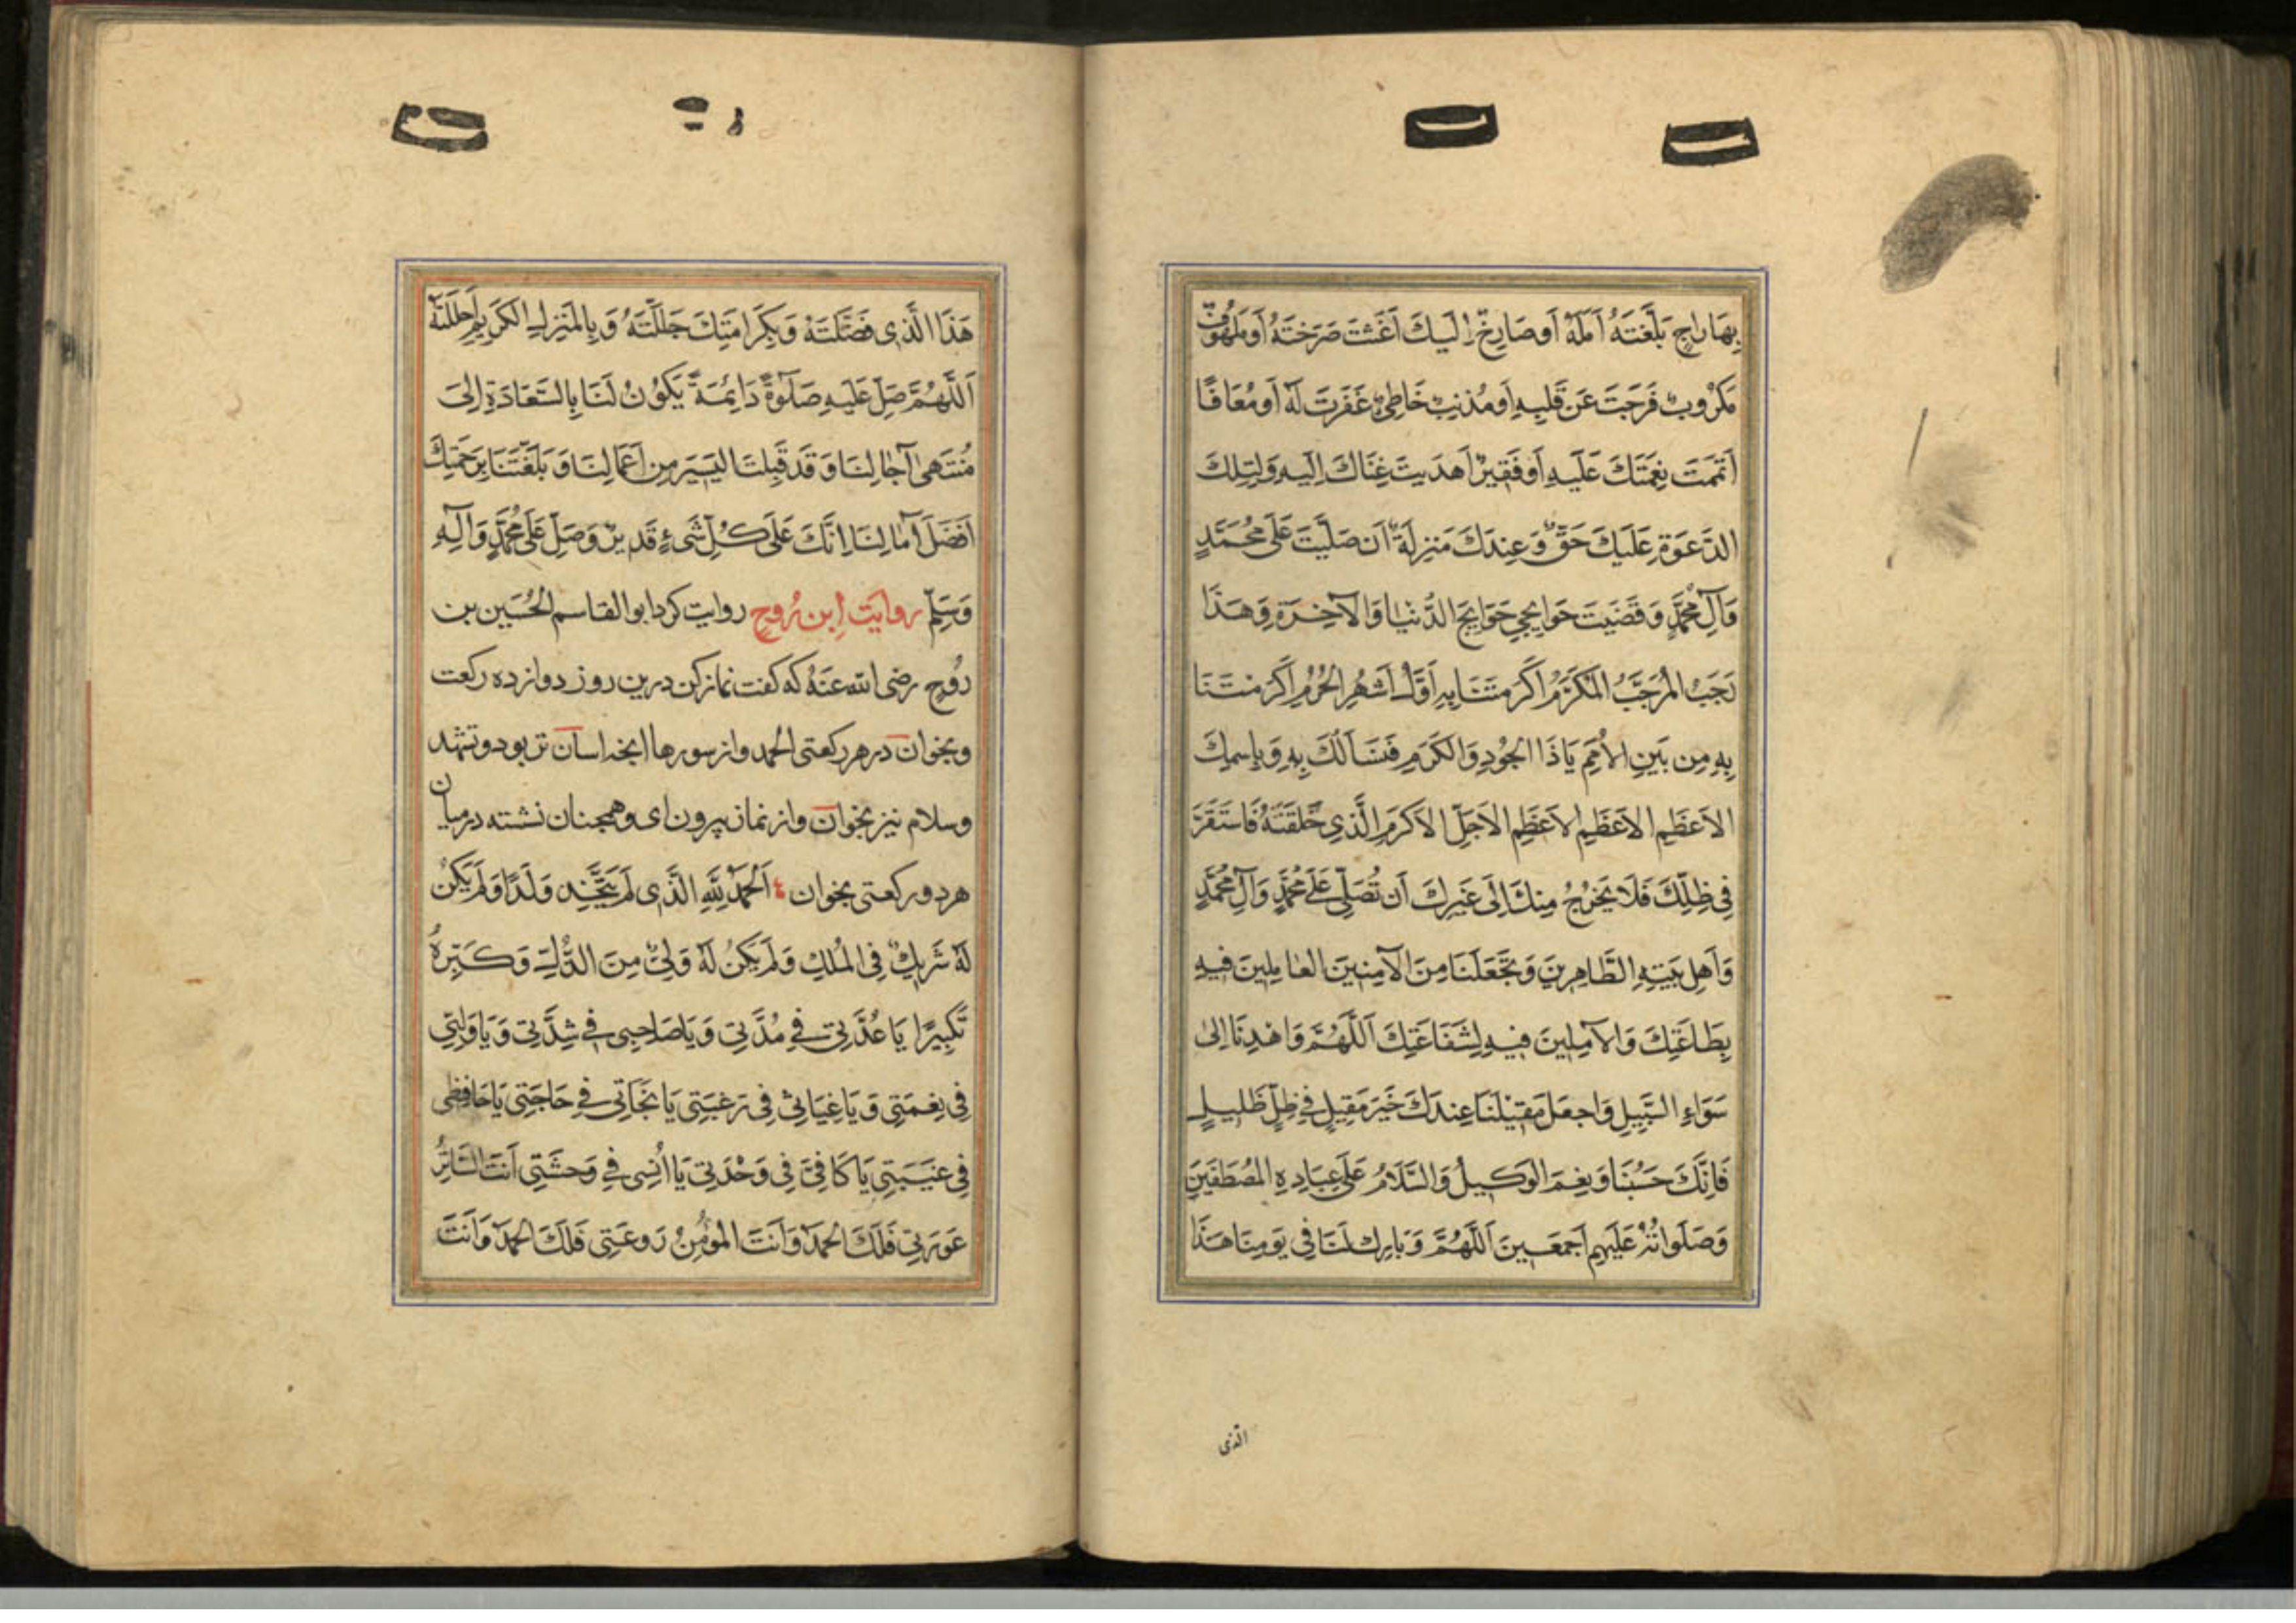 بِهَا رَاجٍ بَلَّغتَهُ اَمَلَهُ اَو صَارِخٌ اِلَيكَ اَغَثتَ صَرَختَهُ اَو مَلهُوفٌ
مَكرُوبٌ فَرَّجتَ عَن قَلبِهِ اَو مُذنِبٌ خَاطِئٌ غَفَرتَ لَهُ اَو مُعَافًا
اَتمَمتَ نِعمَتَكَ عَلَيهِ اَو فَقِيرٌ اَهدَيتَ غِنَاكَ اِلَيهِ وَلِتِلكَ
الدَّعوَةِ عَلَيكَ حَقٌّ وَعِندَكَ مَنزِلَةٌ اَن صَلَّيتَ عَلَى مُحَمَّدٍ
وَآلِ مُحَمَّدٍ وَقَضَيتَ حَوَايِجِي حَوَايِجَ الدُّنيَا وَالآخِرَةِ وَهَذَا
رَجَبُ المُرَجَّبُ المُكَرَّمُ اَكرَمتَنَا بِهِ اَوَّلُ اَشهُرِ الحُرُمِ اَكرَمتَنَا
بِهِ مِن بَينِ الاُمَمِ يَا ذَا الجُودِ وَالكَرَمِ فَنَسأَلُكَ بِهِ وَبِاسمِكَ
الاَعظَمِ الاَعظَمِ الاَعظَمِ الاَجَلِّ الاَكرَمِ الَّذِي خَلَقتَهُ فَاستَقَرَّ
فِي ظِلِّكَ فَلَا يَخرُجُ مِنكَ اِلَى غَيرِكَ اَن تُصَلِّيَ عَلَى مُحَمَّدٍ وَآلِ مُحَمَّدٍ
وَاَهلِ بَيتِهِ الطَّاهِرِينَ وَتَجعَلَنَا مِنَ الآمِنِينَ العَامِلِينَ فِيهِ
بِطَاعَتِكَ وَالآمِلِينَ فِيهِ لِشَفَاعَتِكَ اَللَّهُمَّ وَاهدِنَا اِلَى
سَوَاءِ السَّبِيلِ وَاجعَل مَقِيلَنَا عِندَكَ خَيرَ مَقِيلٍ فِي ظِلٍّ ظَلِيلٍ
فَاِنَّكَ حَسبُنَا وَنِعمَ الوَكِيلُ وَالسَّلَامُ عَلَى عِبَادِهِ المُصطَفَينَ
وَصَلَوَاتُهُ عَلَيهِم اَجمَعِينَ اَللَّهُمَّ وَبَارِك لَنَا فِي يَومِنَا هَذَا
الذی
هَذَا الَّذِي فَضَّلتَهُ وَبِكَرَامَتِكَ جَلَّلتَهُ وَبِالمَنزِلِ الكَرِيمِ اَحلَلتَهُ
اَللَّهُمَّ صَلِّ عَلَيهِ صَلوٰةً دَائِمَةً يَكُونُ لَنَا بِالسَّعَادَةِ اِلَى
مُنتَهَى آجَالِنَا وَقَد قَبِلتَ اليَسِيرَ مِن اَعمَالِنَا وَبَلَّغتَنَا بِرَحمَتِكَ
اَفضَلَ آمَالِنَا اِنَّكَ عَلَى كُلِّ شَيءٍ قَدِيرٌ وَصَلِّ عَلَى مُحَمَّدٍ وَآلِهِ
وَسَلِّم روایت اِبن رُوح روایت کرد ابو القاسم الحُسَین بن
رُوح رضی الله عَنهُ که کفت نماز کن درین روز دوازده رکعت
وبخوان در هر رکعتی الحمد واز سورها انجه اسان تر بود وتشهد
وسلام نیز بخوان واز نماز بیرون ای وهمجنان نشسته درمیان
هر دو رکعتی بخوان اَلحَمدُ لِلَّهِ الَّذِي لَم يَتَّخِذ وَلَدًا وَلَم يَكُن
لَهُ شَرِيكٌ فِي المُلكِ وَلَم يَكُن لَهُ وَلِيٌّ مِنَ الذُّلِّ وَكَبِّرهُ
تَكبِيرًا يَا عُدَّتِي فِي مُدَّتِي وَيَا صَاحِبِي فِي شِدَّتِي وَيَا وَلِيِّي
فِي نِعمَتِي وَيَا غِيَاثِي فِي رَغبَتِي يَا نَجَاتِي فِي حَاجَتِي يَا حَافِظِي
فِي غَيبَتِي يَا كَافِيَّ فِي وَحدَتِي يَا اُنسِي فِي وَحشَتِي اَنتَ السَّاتِرُ
عَورَتِي فَلَكَ الحَمدُ وَاَنتَ المُؤمِنُ رَوعَتِي فَلَكَ الحَمدُ وَاَنتَ